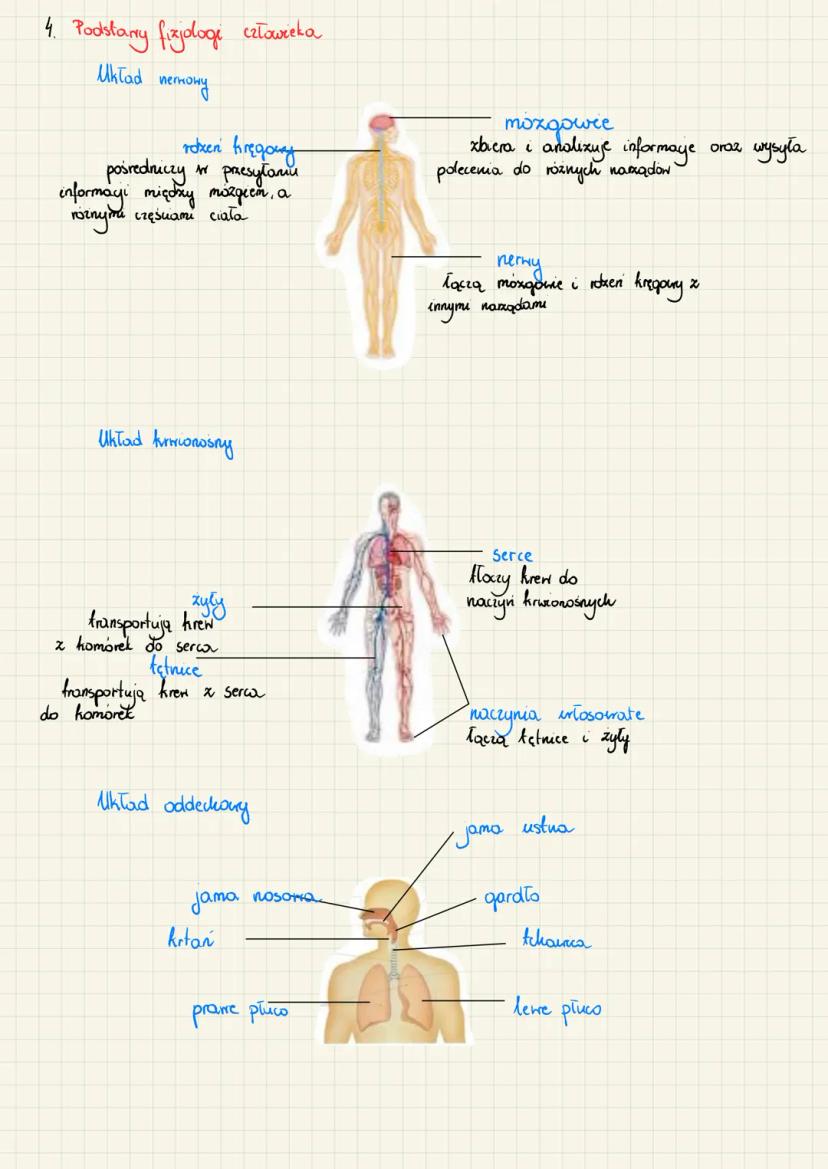 4. Podstawy fizjologi człowieka
Układ nerwowy
mózgowie
zbiera i analizuje informacje oraz wysyła
polecenia do różnych narządów
rdzeń kręgowy
pośredniczy w przesyłaniu
informacji między mózgiem, a
różnymi częściami ciała
nerwy
łączą mózgowie i rdzeń kręgowy z
innymi narządami
Układ krwionośny
serce
tłoczy krew do
naczyń krwionośnych
żyły
transportują krew
z komórek do serca
tętnice
transportują krew z serca
do komórek
naczynia włosowate
łączą tętnice i żyły
Układ oddechowy
jama ustna
jama nosowa
gardło
krtań
tchawica
prawe płuco
lewe płuco